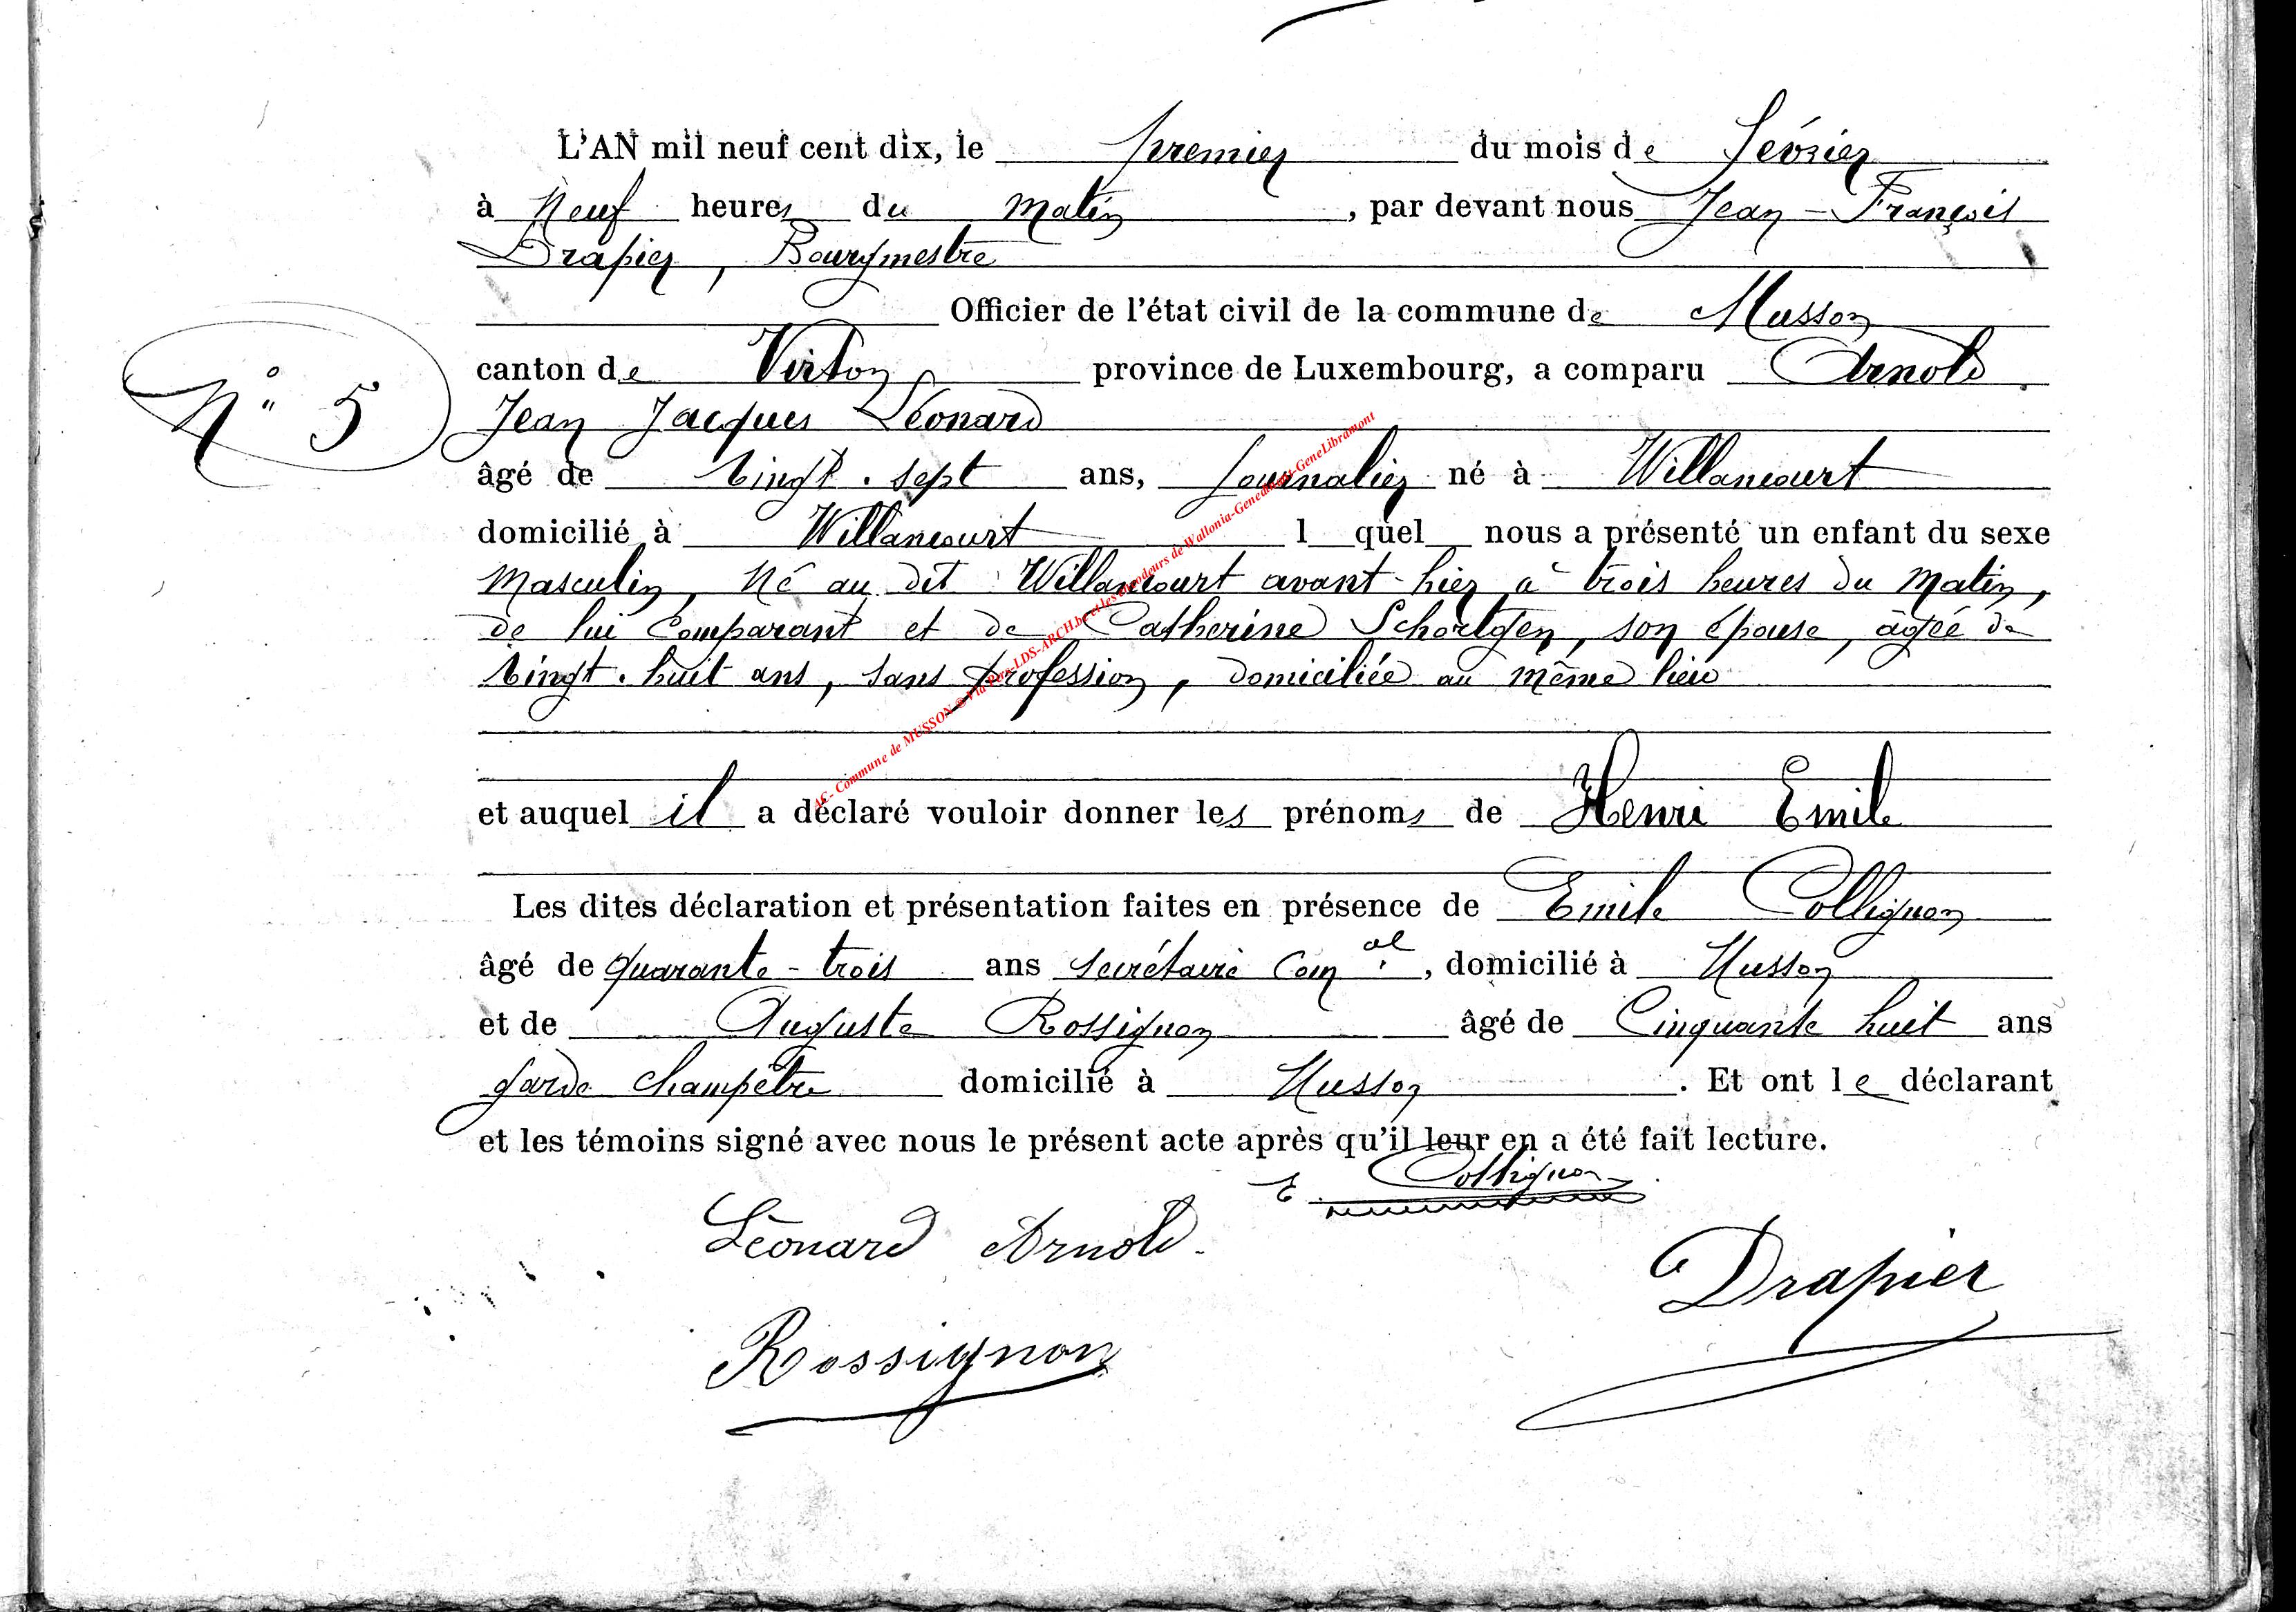 L'AN mil neuf cent dix, le premier du mois de Février
à Neuf heures du Matin, par devant nous Jean-François
Drapier, Bourgmestre
Officier de l'état civil de la commune de Musson
canton de Virton province de Luxembourg, a comparu Arnold
N° 5
Jean Jacques Léonard
âgé de Vingt-sept ans, Journalier né à Willancourt
domicilié à Willancourt l quel nous a présenté un enfant du sexe
Masculin, Né au dit Willancourt avant-hier à trois heures du Matin,
de lui Comparant et de Catherine Schortgen, son épouse, âgée de
Vingt-huit ans, sans profession, domiciliée au même lieu
et auquel il a déclaré vouloir donner les prénoms de Henri Emile
Les dites déclaration et présentation faites en présence de Emile Collignon
âgé de quarante-trois ans secrétaire Com.al, domicilié à Musson
et de Auguste Rossignon âgé de Cinquante huit ans
garde champêtre domicilié à Musson. Et ont le déclarant
et les témoins signé avec nous le présent acte après qu'il leur en a été fait lecture.
E. Collignon
Léonard Arnold.
Drapier
Rossignon
AC- Commune de MUSSON @ Via Pers-LDS-ARCH.be et les décodeurs de Wallonia-GeneLibramont